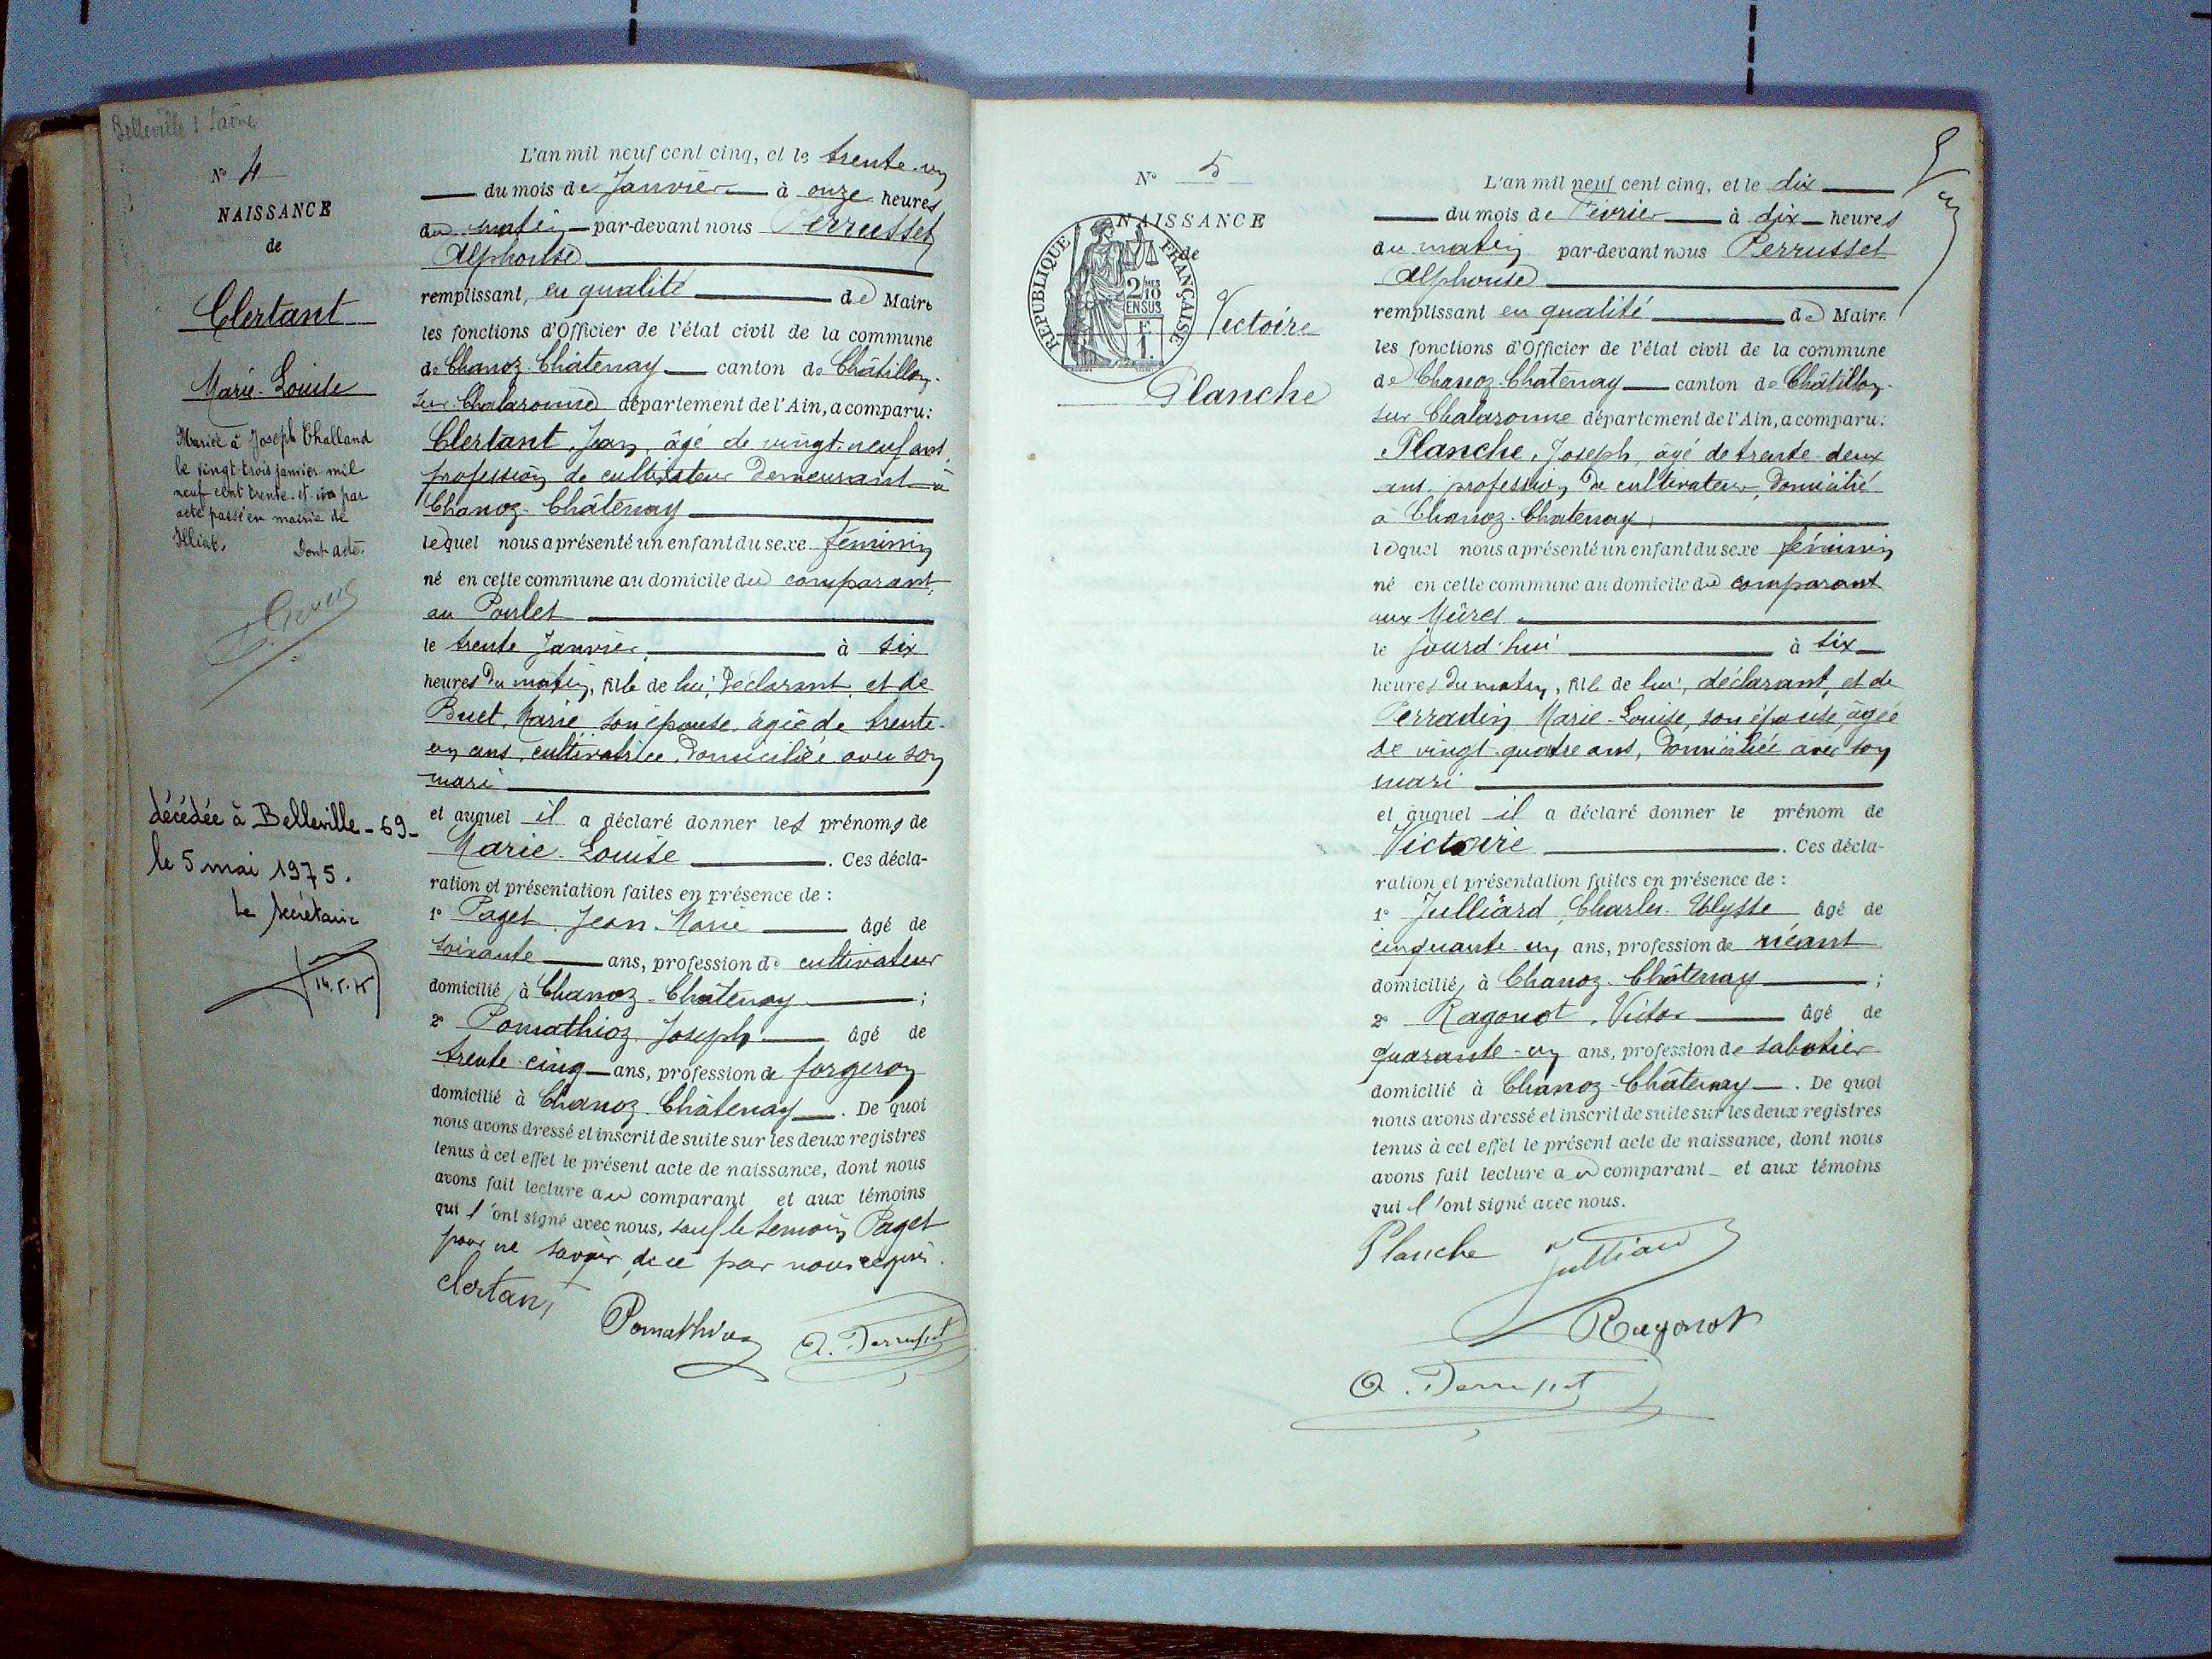 Belleville s/ Saône
N° 4
NAISSANCE
de
Clertant
Marie-Louise
Mariée à Joseph Challand
le vingt-trois janvier mil
neuf cent trente-et-un par
acte passé en mairie de
Illiat. Dont acte.
décédée à Belleville - 69 -
le 5 mai 1975.
Le secrétaire
L'an mil neuf cent cinq, et le trente-un
du mois de Janvier à onze heures
du matin par-devant nous Perrusset
Alphonse
remplissant, en qualité de Maire
les fonctions d'Officier de l'état civil de la commune
de Chanoz-Châtenay canton de Châtillon-
sur-Chalaronne département de l'Ain, a comparu:
Clertant, Jean, âgé de vingt-neuf ans,
profession de cultivateur demeurant à
Chanoz-Châtenay
lequel nous a présenté un enfant du sexe féminin
né en cette commune au domicile du comparant,
au Poulet
le trente Janvier, à six
heures du matin, fille de lui, déclarant, et de
Buet, Marie son épouse, âgée de trente-
un ans, cultivatrice, domiciliée avec son
mari
et auquel il a déclaré donner les prénoms de
Marie-Louise. Ces décla-
ration et présentation faites en présence de :
1° Paget, Jean-Marie âgé de
soixante ans, profession de cultivateur
domicilié à Chanoz-Châtenay ;
2° Pomathioz Joseph âgé de
trente-cinq ans, profession de forgeron
domicilié à Chanoz-Châtenay. De quoi
nous avons dressé et inscrit de suite sur les deux registres
tenus à cet effet le présent acte de naissance, dont nous
avons fait lecture au comparant et aux témoins
qui l'ont signé avec nous, sauf le témoin Paget
pour ne savoir, de ce par nous requis.
Clertant Pomathioz A. Perrusset
N° 5
NAISSANCE
de
REPUBLIQUE FRANÇAISE
2/10
EN SUS
F.
1.
Victoire
Planche
L'an mil neuf cent cinq, et le dix
du mois de Février à dix heures
du matin par-devant nous Perrusset
Alphonse
remplissant en qualité de Maire
les fonctions d'Officier de l'état civil de la commune
de Chanoz-Chatenay canton de Châtillon-
sur Chalaronne département de l'Ain, a comparu:
Planche, Joseph, âgé de trente-deux
ans, profession de cultivateur, domicilié
à Chanoz-Chatenay,
lequel nous a présenté un enfant du sexe féminin
né en cette commune au domicile du comparant
aux Mûres
le jourd'hui à six
heures du matin, fille de lui, déclarant, et de
Perradin Marie-Louise, son épouse, âgée
de vingt-quatre ans, domiciliée avec son
mari
et auquel il a déclaré donner le prénom de
Victoire. Ces décla-
ration et présentation faites en présence de :
1° Julliard, Charles-Ulysse âgé de
cinquante-un ans, profession de néant
domicilié, à Chanoz-Châtenay ;
2° Ragonot, Victor âgé de
quarante-un ans, profession de sabotier
domicilié à Chanoz-Châtenay. De quoi
nous avons dressé et inscrit de suite sur les deux registres
tenus à cet effet le présent acte de naissance, dont nous
avons fait lecture au comparant et aux témoins
qui l'ont signé avec nous.
Planche Julliard
Ragonot
A. Perrusset